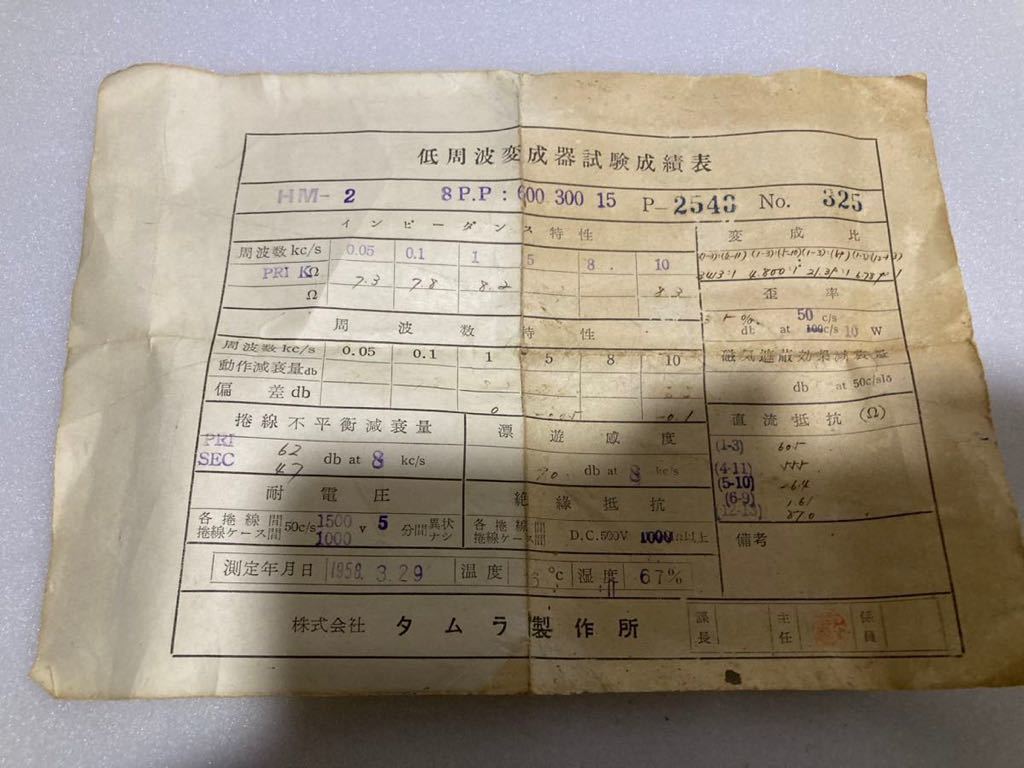 低周波変成器試験成績表
HM-2 8P.P : 600 300 15 P-2543 No. 325
インピーダンス特性
周波数kc/s 0.05 0.1 1 5 8 10
PRI KΩ 7.3 7.8 8.2 8.3
Ω
周波数特性
周波数kc/s 0.05 0.1 1 5 8 10
動作減衰量db
偏差db 0
捲線不平衡減衰量
PRI 62
SEC 47 db at 8 kc/s
漂遊感度
db at 8 kc/s
耐電圧
各捲線間 捲線ケース間 50c/s 1500 1000 v 5 分間異状ナシ
絶縁抵抗
各捲線間 捲線ケース間 D.C.500V 1000 以上
測定年月日 1958. 3.29 温度 °C 湿度 67%
変成比
4.800:1
歪率
50 c/s
db at 100c/s 10 W
磁気遮蔽効果減衰量
db at 50c/s
直流抵抗(Ω)
(1-3) 605
(4-11) 555
(5-10)
(6-9) 1.61
(12-13) 87.0
備考
株式会社 タムラ製作所
課長 主任 係員